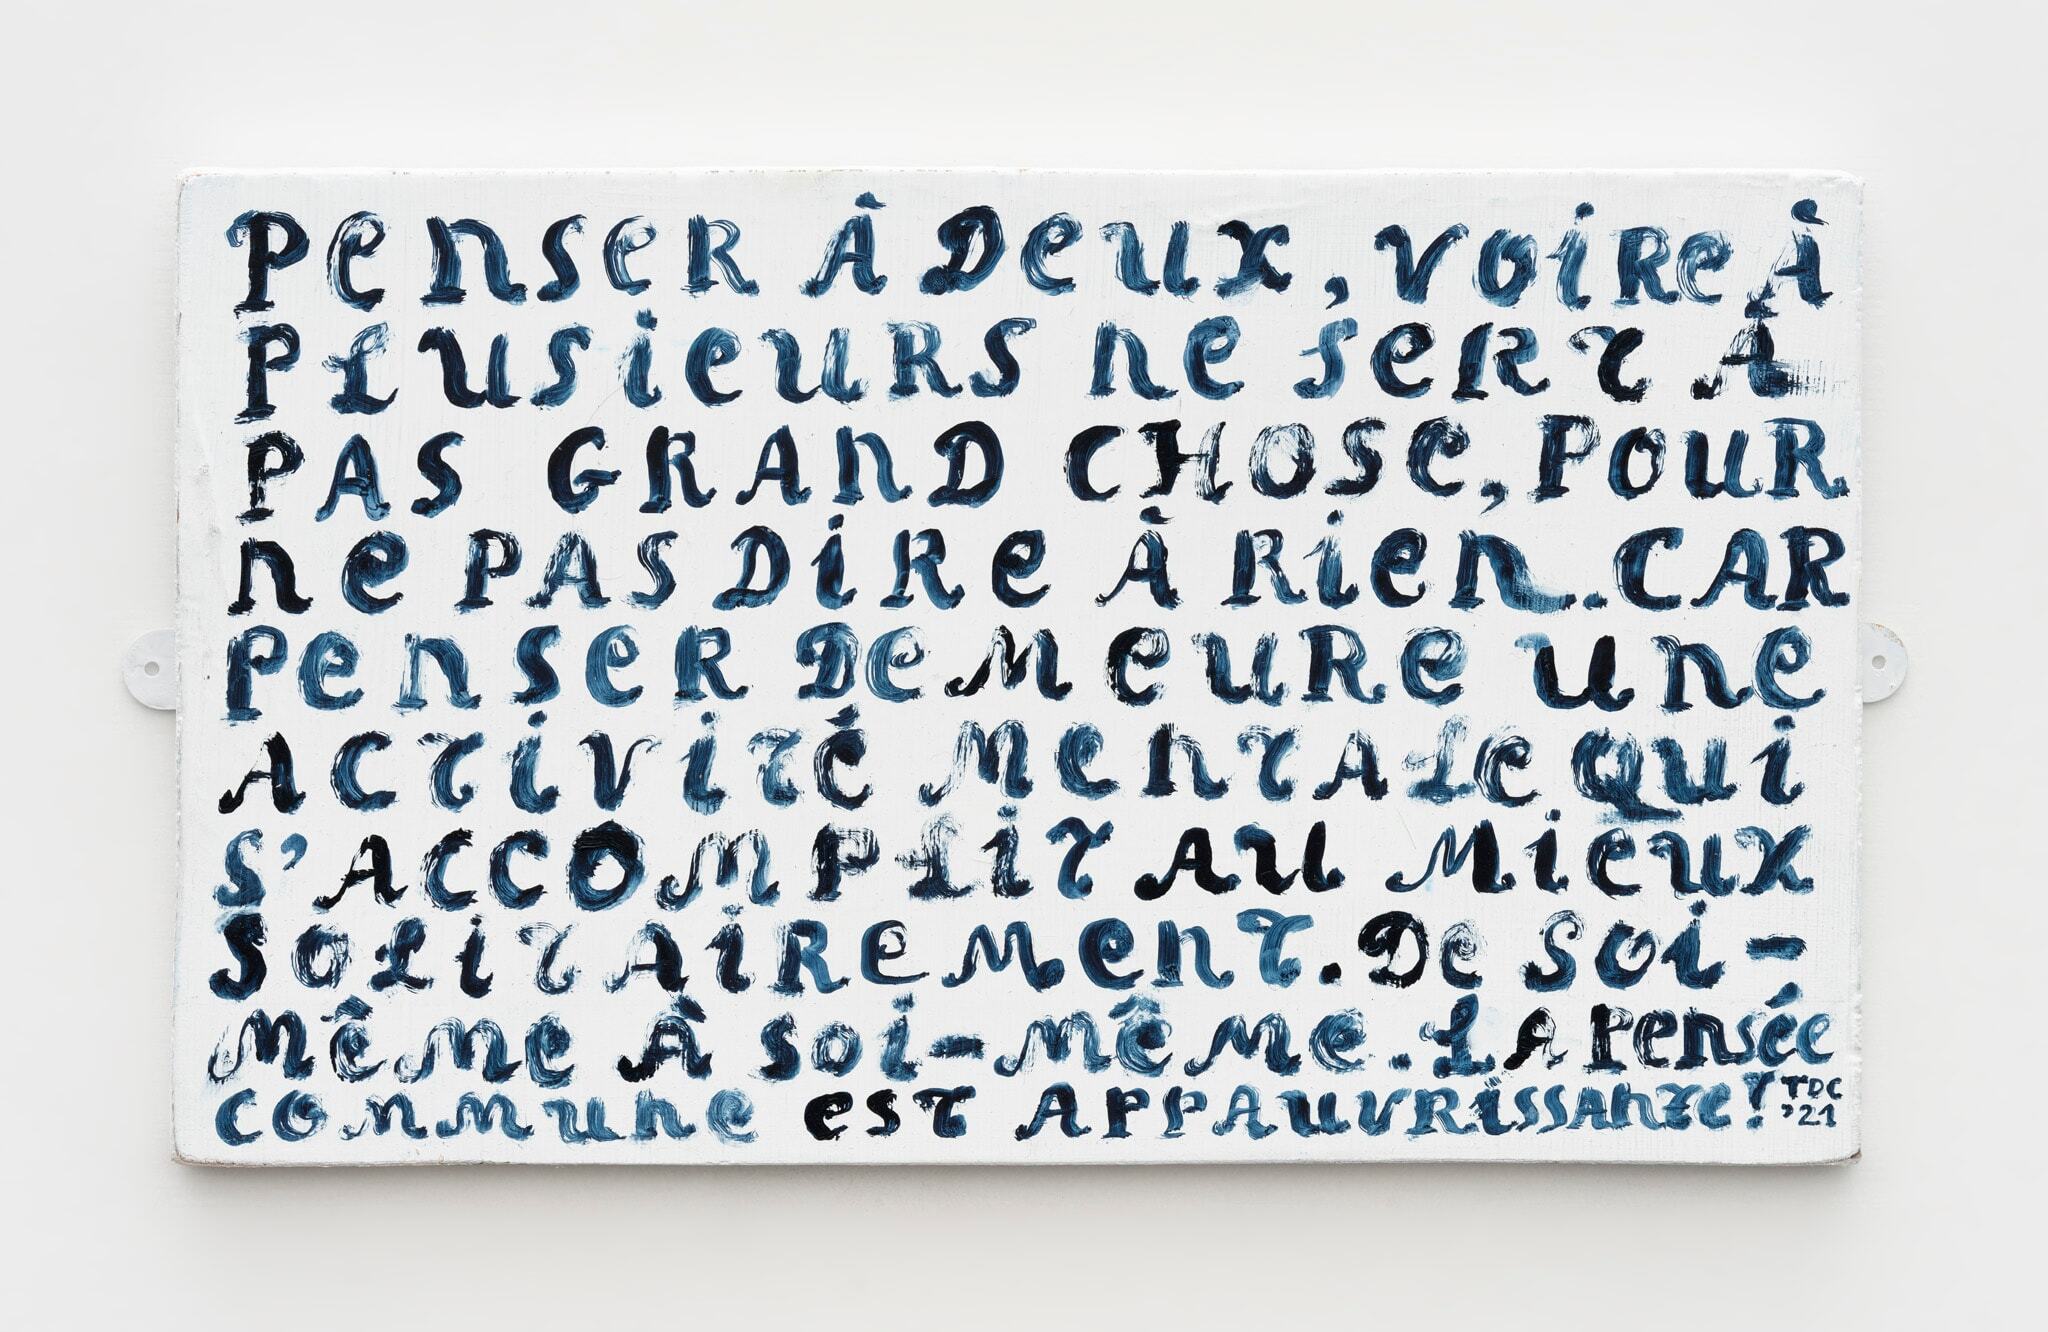 Penser à deux, voire à
plusieurs ne sert à
pas grand chose, pour
ne pas dire à rien. Car
penser demeure une
activité mentale qui
s'accomplit au mieux
solitairement. De soi-
même à soi-même. La pensée
commune est appauvrissante!
TDC
'21